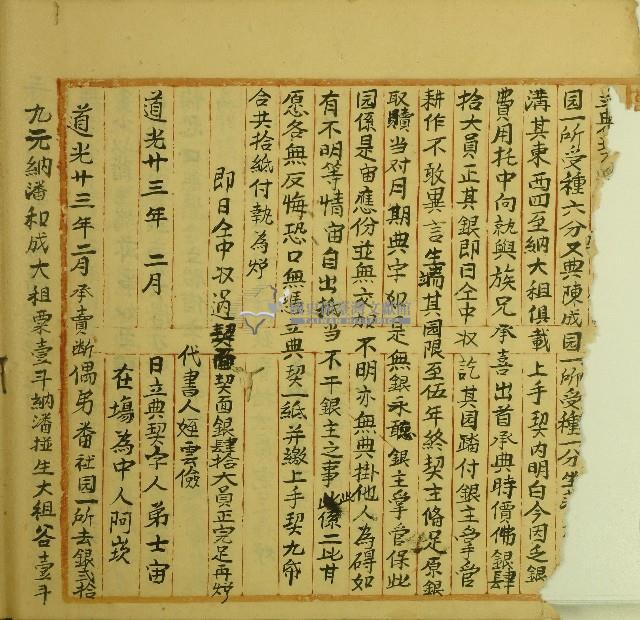 園一所受種六分又典陳成园一所受種二分生
溝其東西四至納大租俱載上手契內明白今因乏銀
費用托中向就與族兄承喜出首承典時價佛銀肆
拾大員正其銀即日仝中收訖其园踏付銀主掌管
耕作不敢異言生端其园限至伍年終契主俻足原銀
取贖当对月期典字如是無銀永聽銀主掌管保此
园係是宙應份並無交加不明亦無典掛他人為碍如
有不明等情宙自出抵当不干銀主之事此係二比甘
愿各無反悔恐口無凴立典契一紙并繳上手契九帋
合共拾紙付執為炤
即日仝中收過契面契面銀肆拾大員正完足再炤
代書人姪雲儉
道光廿三年二月 日立典契字人弟士宙
在塲為中人阿崁
道光廿三年二月承賣断偶男番社园一所去銀弍拾
九元納潘和成大租粟壹斗納潘生大租谷壹斗